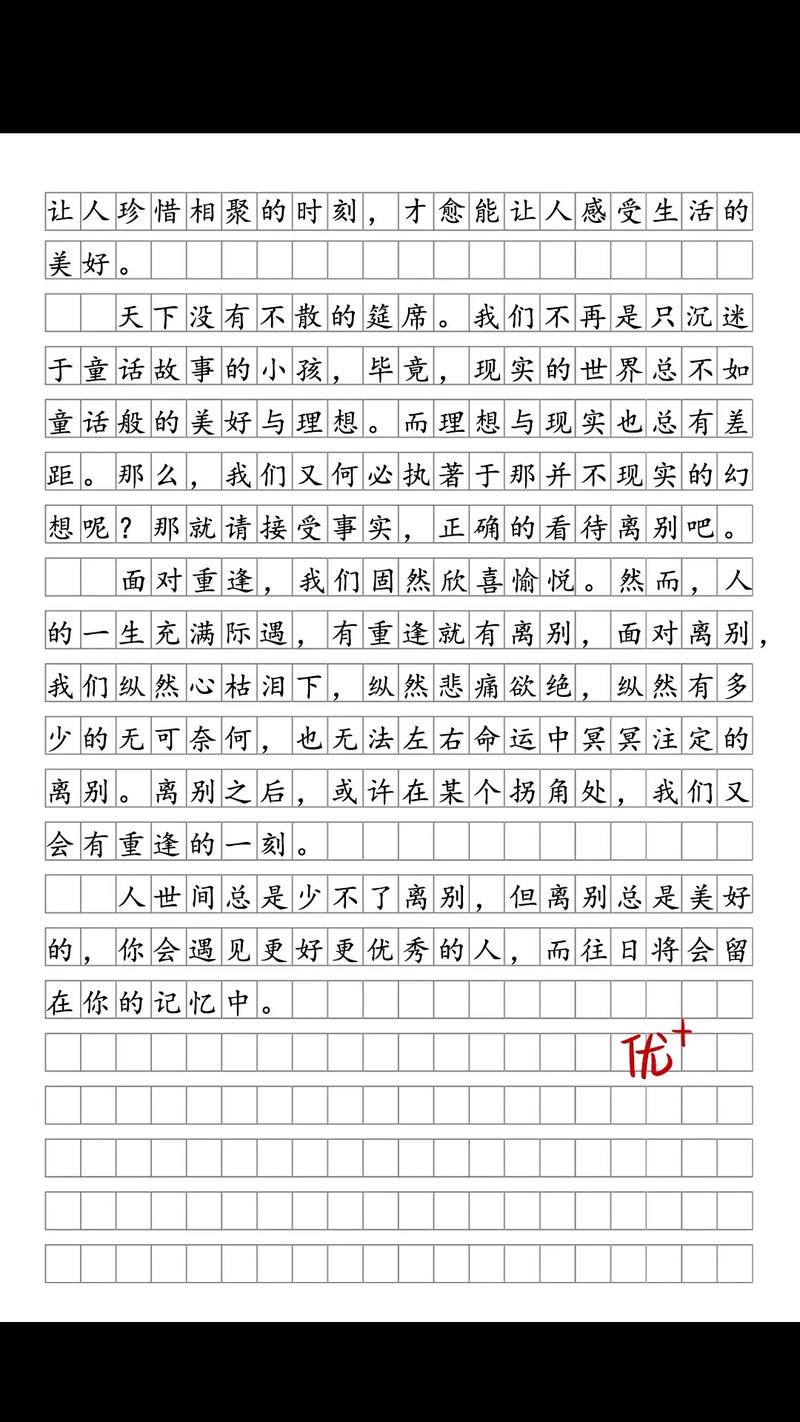 让人珍惜相聚的时刻，才愈能让人感受生活的
美好。
天下没有不散的筵席。我们不再是只沉迷
于童话故事的小孩，毕竟，现实的世界总不如
童话般的美好与理想。而理想与现实也总有差
距。那么，我们又何必执著于那并不现实的幻
想呢？那就请接受事实，正确的看待离别吧。
面对重逢，我们固然欣喜愉悦。然而，人
的一生充满际遇，有重逢就有离别，面对离别，
我们纵然心枯泪下，纵然悲痛欲绝，纵然有多
少的无可奈何，也无法左右命运中冥冥注定的
离别。离别之后，或许在某个拐角处，我们又
会有重逢的一刻。
人世间总是少不了离别，但离别总是美好
的，你会遇见更好更优秀的人，而往日将会留
在你的记忆中。
优+